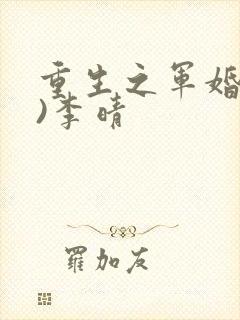 重生之军婚
)李晴
罗加友